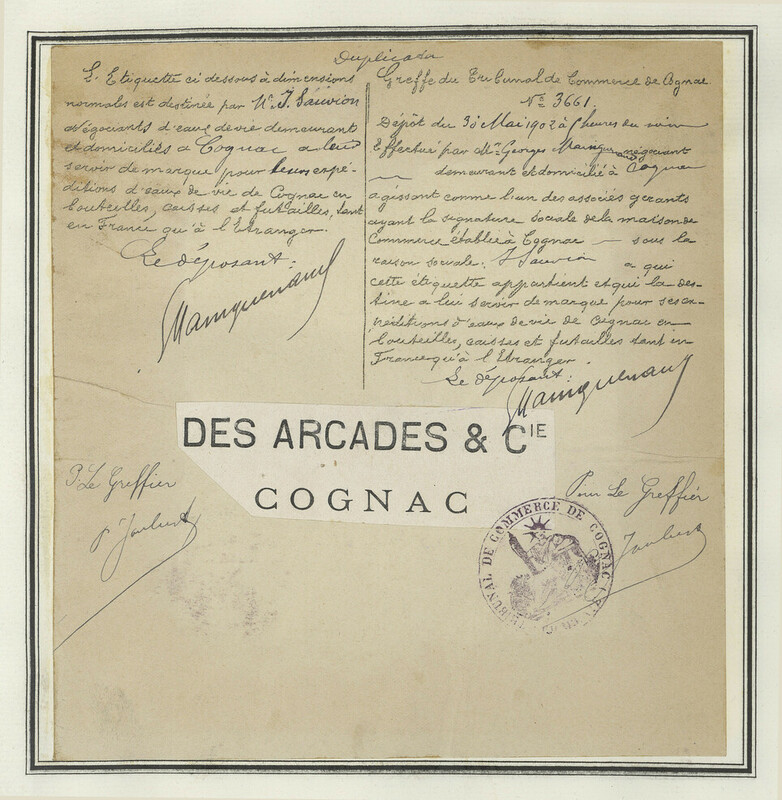 Duplicata
L'Etiquette ci dessous à dimensions
normales est destinée par Mr J. Sauvion
Négociants d'eaux de vie demeurant
et domiciliés à Cognac à leur
servir de marque pour leurs expé-
ditions d'eaux de vie de Cognac en
bouteilles, caisses et futailles, tant
en France qu'à l'Etranger.
Le déposant:
Mainguenaud
Greffe du Tribunal de Commerce de Cognac
No 3661.
Dépôt du 30 Mai 1902 à heures du soir
Effectué par Mr Georges Mainguenaud négociant
demeurant et domicilié à Cognac
agissant comme l'un des associés gérants
ayant la signature sociale de la maison de
Commerce établie à Cognac — sous la
raison sociale: J Sauvion à qui
cette étiquette appartient et qui la des-
tine à lui servir de marque pour ses ex-
péditions d'eaux de vie de Cognac en
bouteilles, caisses et futailles tant en
France qu'à l'Etranger.
Le déposant:
Mainguenaud
DES ARCADES & CIE
COGNAC
P. Le Greffier
Joubert
Pour Le Greffier
Joubert
TRIBUNAL DE COMMERCE DE COGNAC